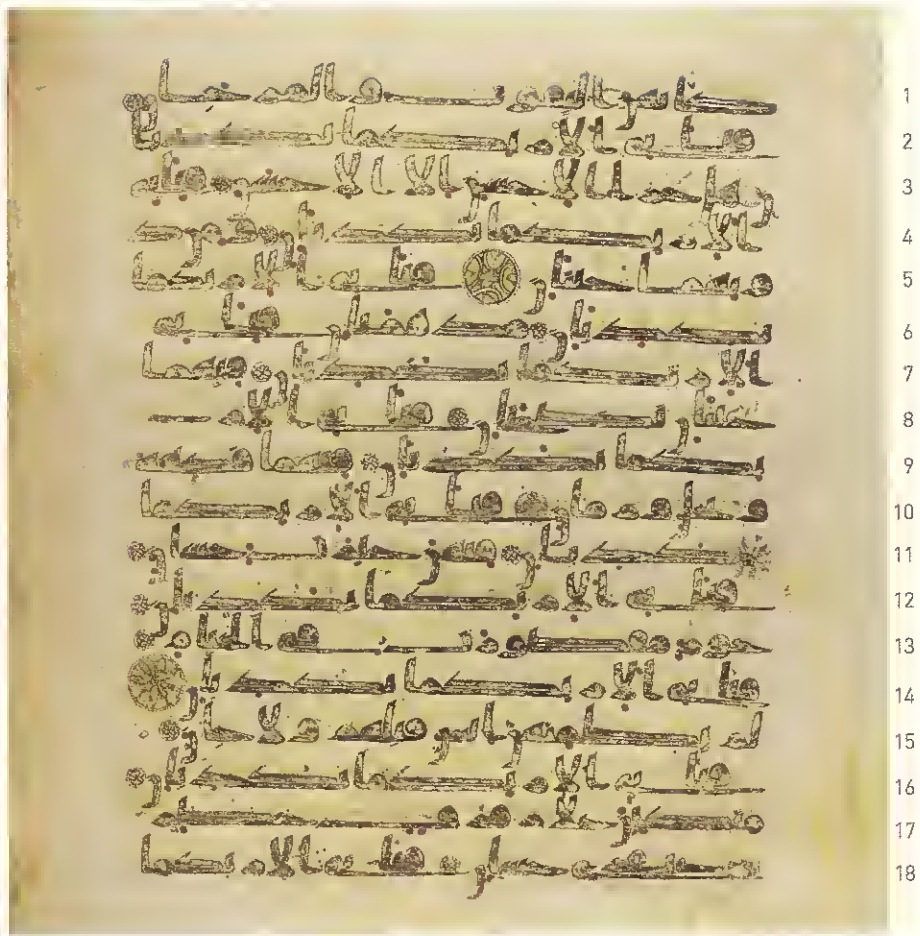 كانهن الياقوت والمرجا
ن فباي الا ربكما تكذبا
ن هل جزا الاحسن الا الاحسن فباي
الا ربكما تكذبان ومن دو
نهما جنتان فباي الا ربكما
تكذبان مدهامتان فباي
الا ربكما تكذبان فيهما
عينان نضاختان فباي الا
ربكما تكذبان فيهما فكهة
ونخل ورمان فباي الا ربكما
تكذبان فيهن خيرت حسان
فباي الا ربكما تكذبان
حور مقصورت في الخيام
فباي الا ربكما تكذبان
لم يطمثهن انس قبلهم ولا جان
فباي الا ربكما تكذبان
متكين على رفرف خضر
وعبقري حسان فباي الا ربكما
1
2
3
4
5
6
7
8
9
10
11
12
13
14
15
16
17
18